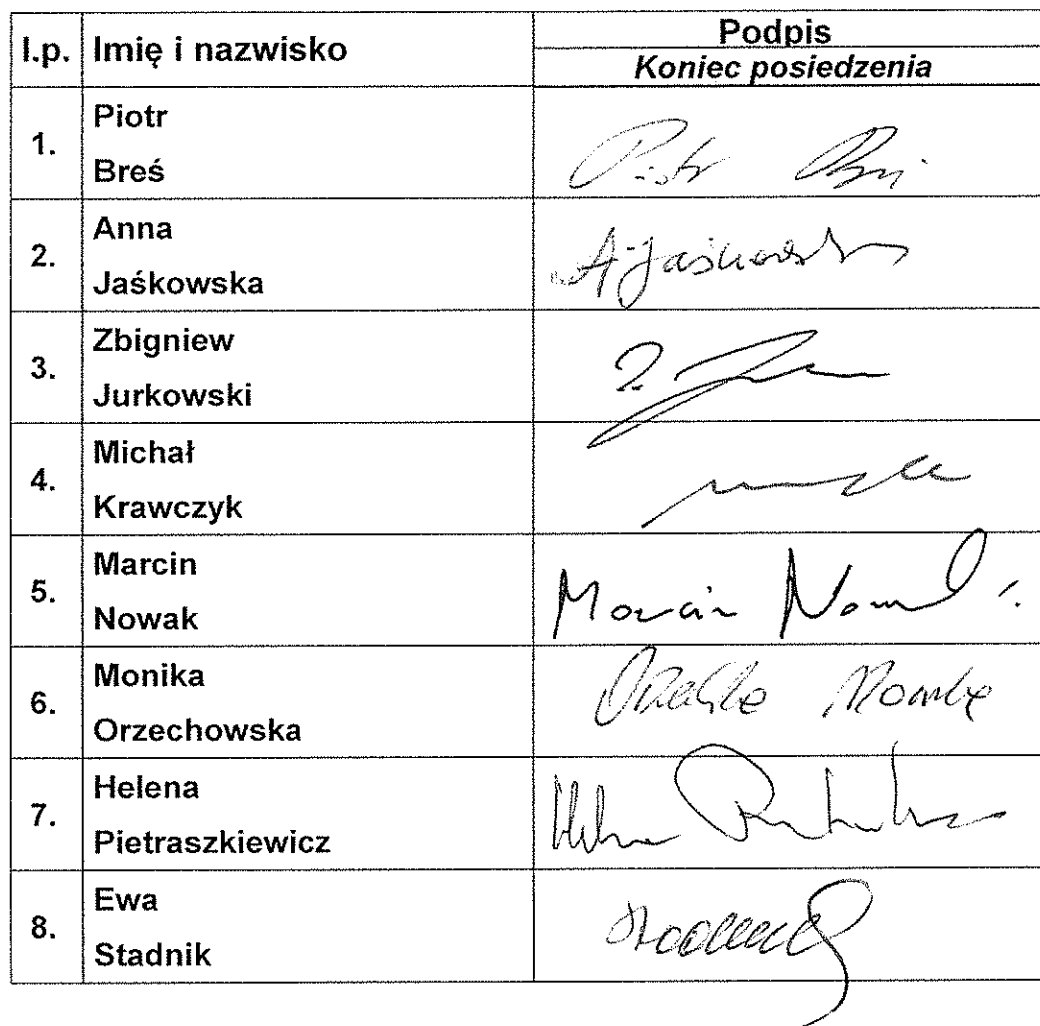 l.p. Imię i nazwisko Podpis
Koniec posiedzenia
1. Piotr
Breś
Piotr
2. Anna
Jaśkowska
A. Jaśkowska
3. Zbigniew
Jurkowski
4. Michał
Krawczyk
5. Marcin
Nowak
Marcin Nowak
6. Monika
Orzechowska
7. Helena
Pietraszkiewicz
Helena
8. Ewa
Stadnik